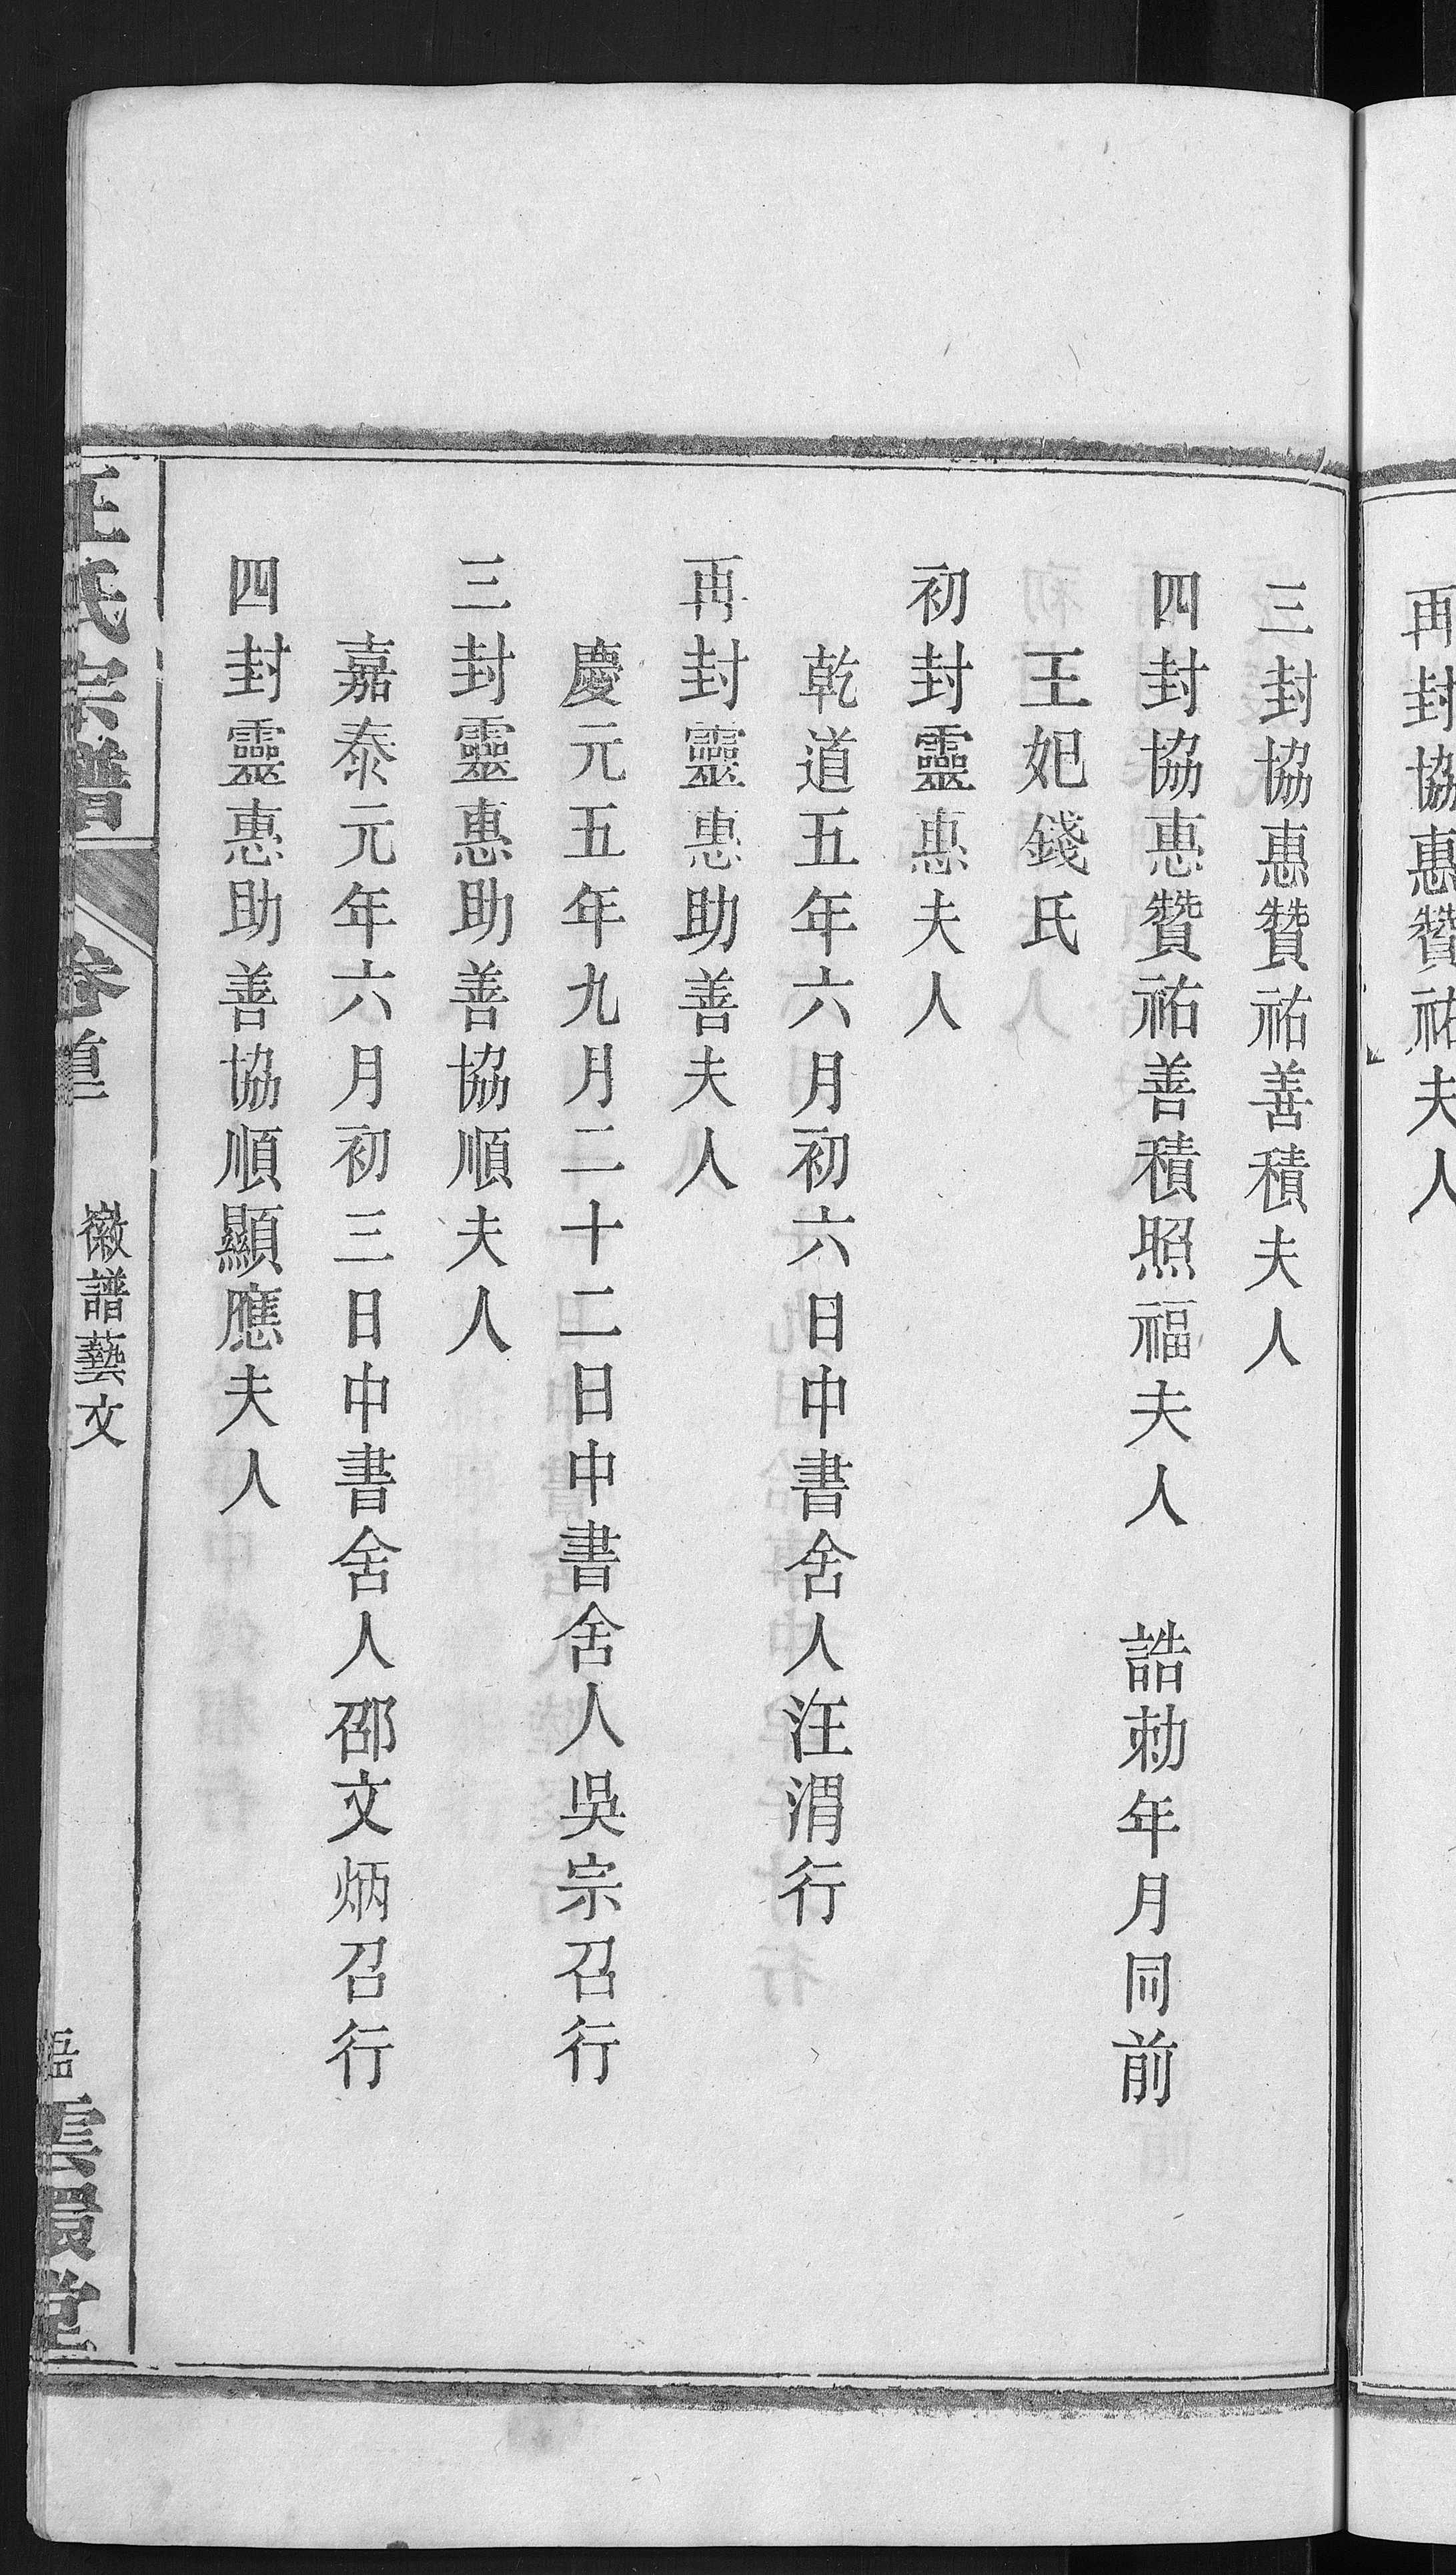 再封協惠贊祐夫人
三封協惠贊祐善積夫人
四封協惠贊祐善積照福夫人　誥勅年月同前
王妃錢氏
初封靈惠夫人
乾道五年六月初六日中書舍人汪涓行
再封靈惠助善夫人
慶元五年九月二十二日中書舍人吳宗召行
三封靈惠助善協順夫人
嘉泰元年六月初三日中書舍人邵文炳召行
四封靈惠助善協順顯應夫人
汪氏宗譜　卷首　徽譜藝文　雲環堂